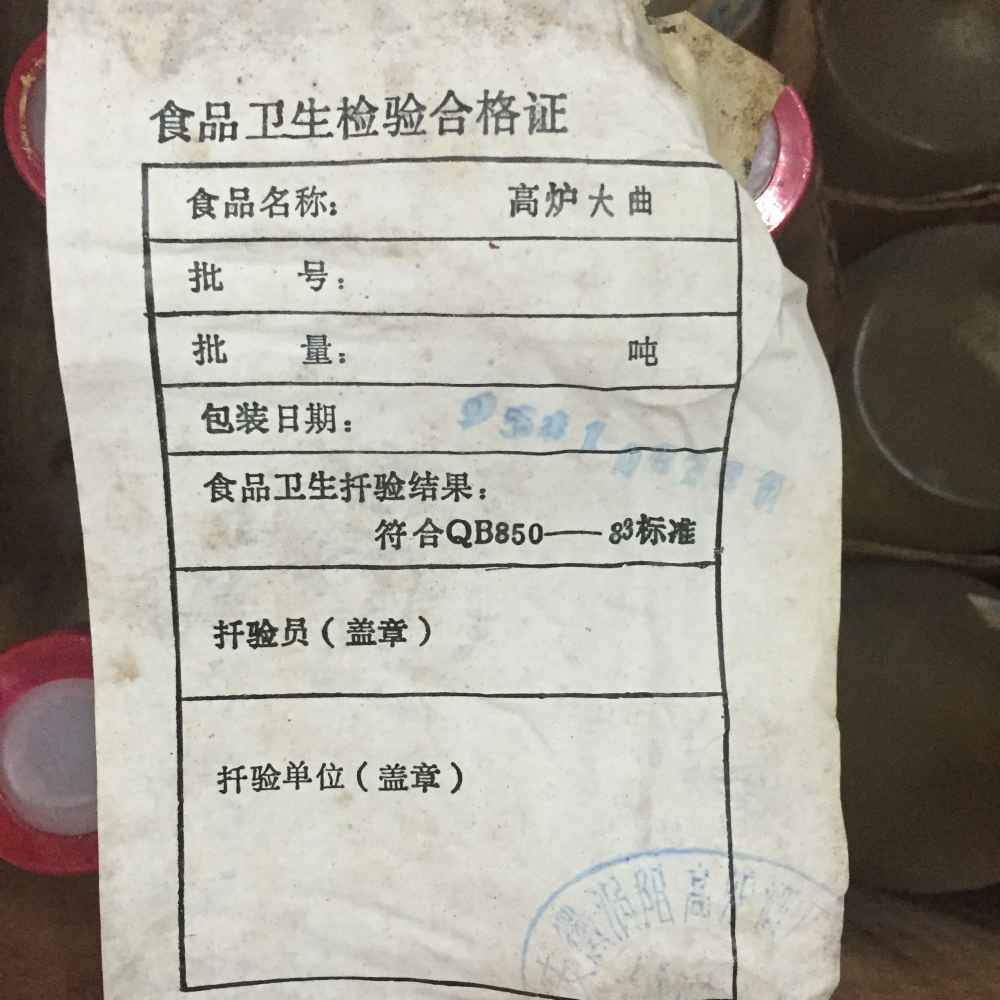 食品卫生检验合格证
食品名称： 高炉大曲
批 号：
批 量： 吨
包装日期：
食品卫生扦验结果：
符合QB850——83标准
扦验员（盖章）
扦验单位（盖章）
安徽涡阳高炉酒